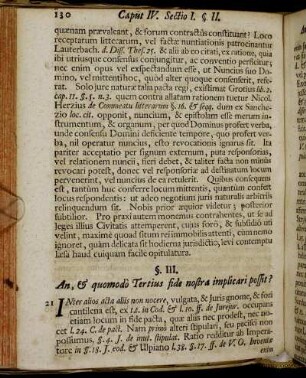 130 Caput IV. Sectio I. §. II.
quenam prævaleant, & forum contractûs constituant? Loco
receptarum litterarum, vel factæ nuntiationis patrocinantur
Lauterbach. d. Diss. Thes. 25. & alii ab eo citati, ex ratione, quia
ibi utriusque consensus conjungitur, ac conventio perficitur;
nec enim opus vel exspectandum esse, ut Nuncius suo Do-
mino, vel mittenti hoc, quod alter quoque consenserit, refe-
rat. Solo jure naturæ talia pacta regi, existimat Grotius lib. 2.
cap. 11. §. 5. n. 3. quem contra allatam rationem tuetur Nicol.
Herzus de Commeatu litterarum §. 16. & seqq. dum ex Sanchezio
loc. cit. opponit, nuncium, & epistolam esse merum in-
strumentum, & organum, per quod Dominus profert verba,
unde consensu Domini deficiente tempore, quo profert ver-
ba, nil operatur nuncius, esto revocationis ignarus sit. Ita
pariter acceptatio per signum externum, puta responsorias,
vel relationem nuncii, fieri debet, & taliter facta non minus
revocari potest, donec vel responsoriæ ad destinatum locum
pervenerint, vel nuncius de ea retulerit. Quibus consequens
est, tantùm huc conferre locum mittentis, quantùm confert
locus respondentis: ut adeo negotium juri naturali arbitriis
relinquendum sit. Nobis prior æquior videtur; posterior
subtilior. Pro praxi autem monemus contrahentes, ut se ad
leges illius Civitatis attemperent, cujus foro, & subsidio uti
velint, maxime quoad istum reliminobilis attenti, cum nemo
ignoret, quàm delicata sit hodierna jurisdictio, levi contemptu
læsa haud cuiquam facile opitulatura.
§. III.
An, & quomodò Tertius fide nostra implicari possit?
21 INter alios acta aliis non nocere, vulgata, & Juris gnome, & fori
cantilena est, ex l. 2. in Cod. & l. 10. ff. de Jurejur. occupat
etiam locum in fide pacta, quæ aliis nec prodest, nec no-
cet l. 24. C. de pact. Nam primò alteri stipulari, seu pacisci non
possumus, §. 4. J. de inutil. stipulat. Ratio redditur ab Impera-
tore in §. 18. J. eod. & Ulpiano l. 38. §. 17. ff. de V. O. Inventæ
enim